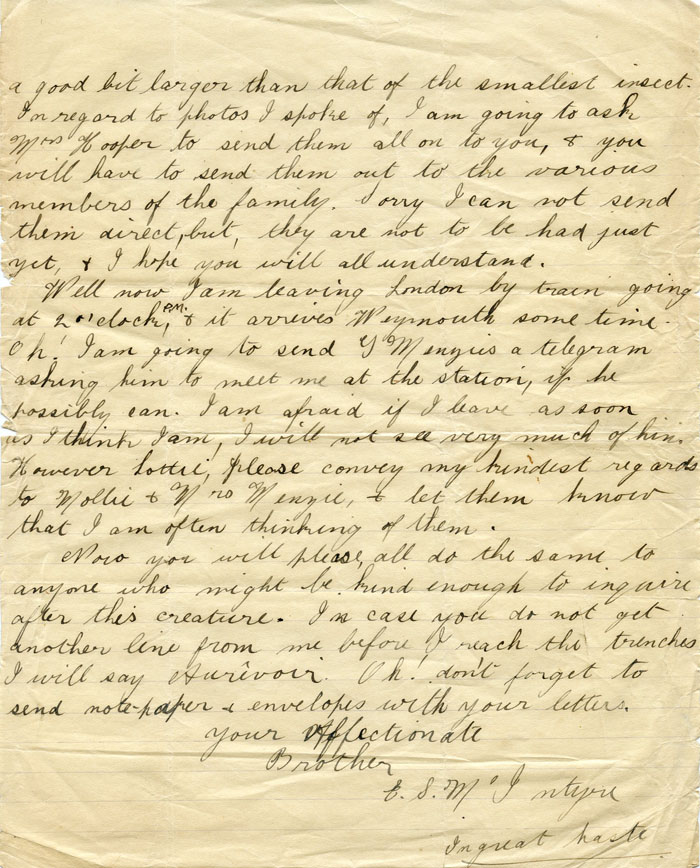 a good bit larger than that of the smallest insect.
In regard to photos I spoke of, I am going to ask
Mrs Hooper to send them all on to you, & you
will have to send them out to the various
members of the family. Sorry I can not send
them direct, but, they are not to be had just
yet, & I hope you will all understand.
Well now I am leaving London by train going
at 2 o'clock, P.M. & it arrives Weymouth some time.
Oh! I am going to send G Menzies a telegram
asking him to meet me at the station, if he
possibly can. I am afraid if I leave as soon
as I think I am, I will not see very much of him.
However Lottie, please convey my kindest regards
to Mollie & Mrs Menzie, & let them know
that I am often thinking of them.
Now you will please, all do the same to
anyone who might be kind enough to inquire
after this creature. In case you do not get
another line from me before I reach the trenches
I will say Aurêvoir. Oh! don't forget to
send note-paper & envelopes with your letters.
Your Affectionate
Brother
E. S. McIntyre
In great haste